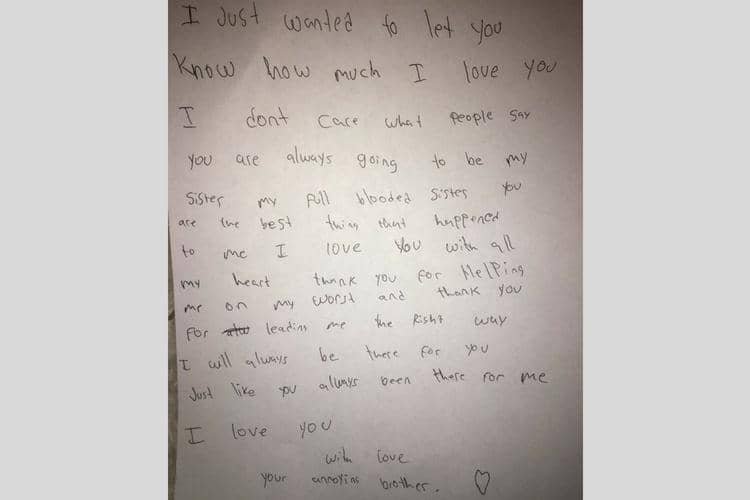 I Just wanted to let you
Know how much I love you
I dont care what people say
you are always going to be my
Sister my full blooded sister you
are the best thing that happened
to me I love you with all
my heart thank you for Helping
me on my worst and thank you
for leading me the Right way
I will always be there for you
Just like you always been there for me
I love you
with love
your annoying brother. ♡